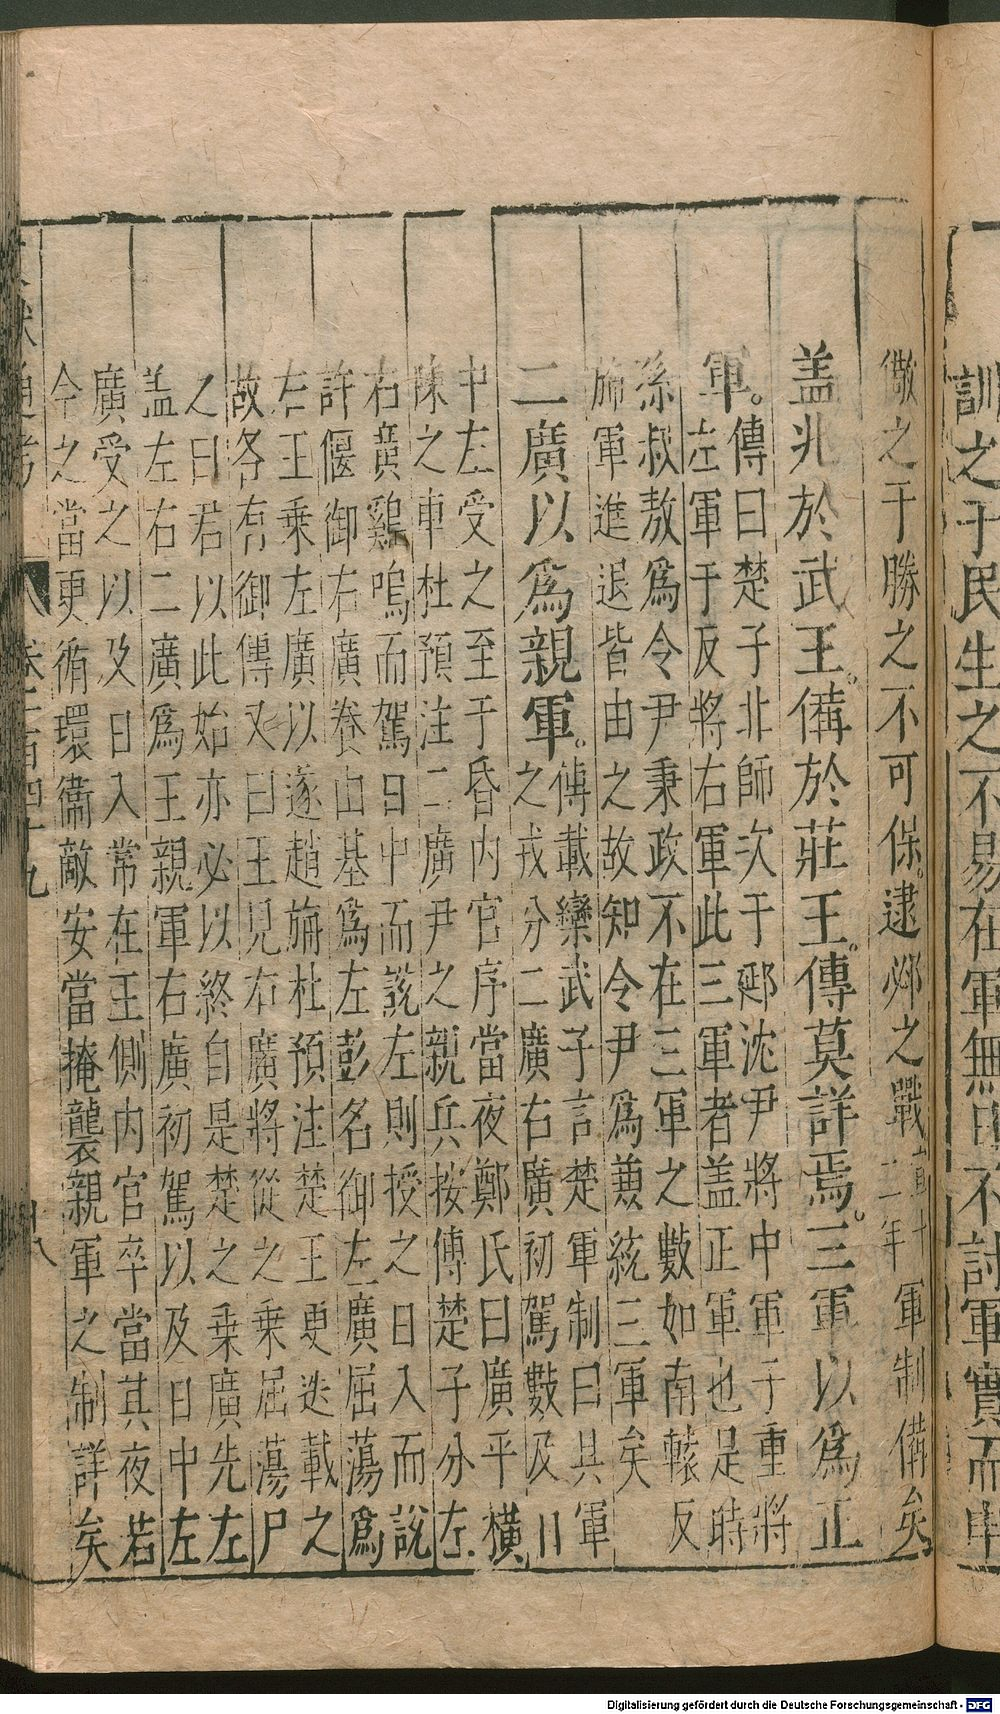 訓之于民生之不易在軍無日不討軍實而申
儆之于勝之不可保。逮邲之戰宣十二年軍制備矣
盖兆於武王。備於莊王。傳莫詳焉。三軍以為正
軍。傳曰楚子北師次于郔沈尹將中軍子重將
左軍子反將右軍此三軍者盖正軍也是時
孫叔敖為令尹秉政不在三軍之數如南轅反
斾軍進退皆由之故知令尹為兼統三軍矣
二廣以為親軍。傳載欒武子言楚軍制曰其軍
之戎分二廣右廣初駕數及日
中左受之至于昏内官序當夜鄭氏曰廣平橫
陳之車杜預注二廣尹之親兵按傳楚子分左
右廣鷄鳴而駕日中而說左則授之日入而說
許偃御右廣養由基為左彭名御左廣屈蕩為
右王乗左廣以遂趙旃杜預注楚王更迭載之
故各有御傳又曰王見右廣將從之乗屈蕩尸
之曰君以此始亦必以終自是楚之乗廣先左
盖左右二廣為王親軍右廣初駕以及日中左
廣受之以及日入常在王側内官卒當其夜若
今之當更循環衛敵安當掩襲親軍之制詳矣
通考 卷 百四十九 四八
Digitalisierung gefördert durch die Deutsche Forschungsgemeinschaft - DFG